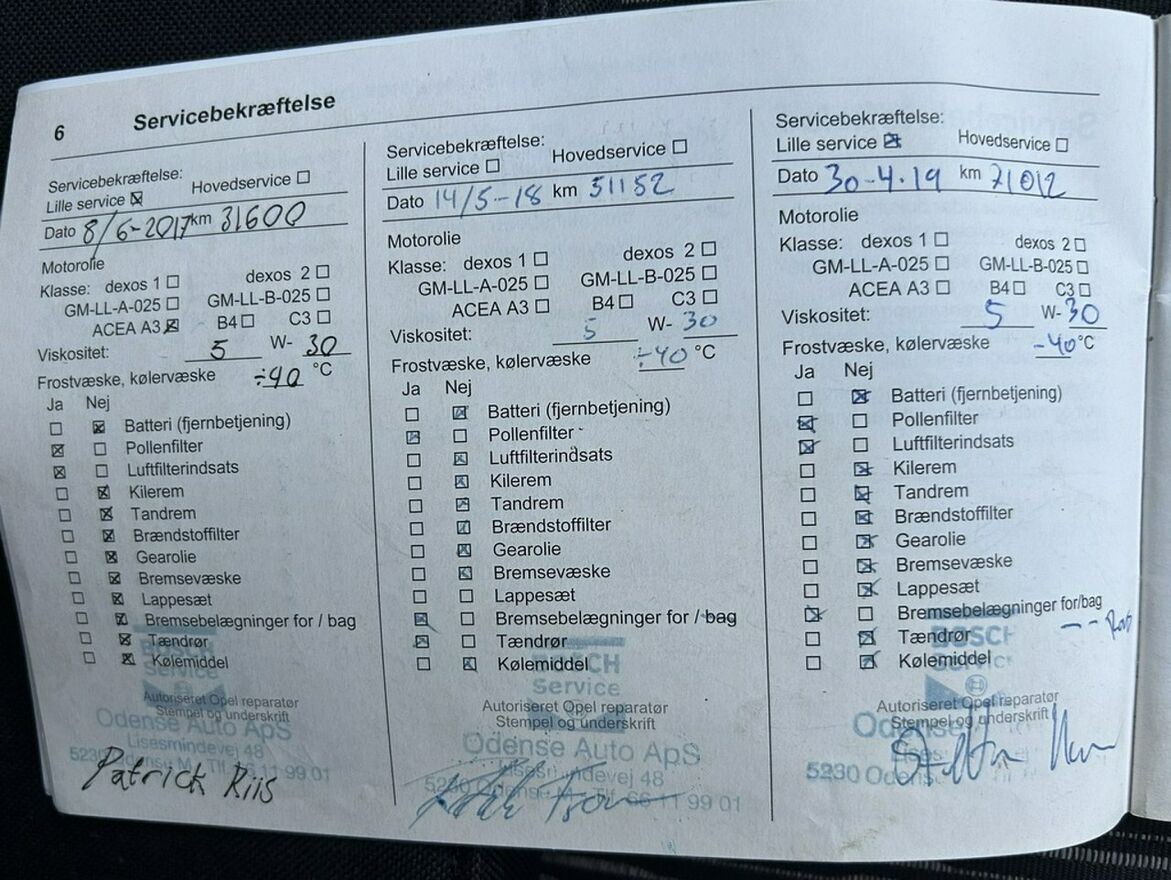 6 Servicebekræftelse
Servicebekræftelse:
Lille service ☒ Hovedservice ☐
Dato 8/6-2017 km 31600
Motorolie
Klasse: dexos 1 ☐ dexos 2 ☐
GM-LL-A-025 ☐ GM-LL-B-025 ☐
ACEA A3 ☒ B4 ☐ C3 ☐
Viskositet: 5 W- 30
Frostvæske, kølervæske ÷40 °C
Ja Nej
☐ ☒ Batteri (fjernbetjening)
☒ ☐ Pollenfilter
☒ ☐ Luftfilterindsats
☐ ☒ Kilerem
☐ ☒ Tandrem
☐ ☒ Brændstoffilter
☐ ☒ Gearolie
☐ ☒ Bremsevæske
☐ ☒ Lappesæt
☐ ☒ Bremsebelægninger for / bag
☐ ☒ Tændrør
☐ ☒ Kølemiddel
BOSCH
Service
Autoriseret Opel reparatør
Stempel og underskrift
Odense Auto ApS
Lisesmindevej 48
5230 Odense M. Tlf. 66 11 99 01
Patrick Riis
Servicebekræftelse:
Lille service ☐ Hovedservice ☐
Dato 14/5-18 km 51152
Motorolie
Klasse: dexos 1 ☐ dexos 2 ☐
GM-LL-A-025 ☐ GM-LL-B-025 ☐
ACEA A3 ☐ B4 ☐ C3 ☐
Viskositet: 5 W- 30
Frostvæske, kølervæske ÷40 °C
Ja Nej
☐ ☒ Batteri (fjernbetjening)
☒ ☐ Pollenfilter
☐ ☒ Luftfilterindsats
☐ ☒ Kilerem
☐ ☒ Tandrem
☐ ☒ Brændstoffilter
☐ ☒ Gearolie
☐ ☒ Bremsevæske
☐ ☐ Lappesæt
☒ ☐ Bremsebelægninger for / bag
☒ ☐ Tændrør
☐ ☒ Kølemiddel
BOSCH
Service
Autoriseret Opel reparatør
Stempel og underskrift
Odense Auto ApS
Lisesmindevej 48
5230 Odense M. Tlf. 66 11 99 01
Servicebekræftelse:
Lille service ☒ Hovedservice ☐
Dato 30-4.19 km 71012
Motorolie
Klasse: dexos 1 ☐ dexos 2 ☐
GM-LL-A-025 ☐ GM-LL-B-025 ☐
ACEA A3 ☐ B4 ☐ C3 ☐
Viskositet: 5 W- 30
Frostvæske, kølervæske -40 °C
Ja Nej
☐ ☒ Batteri (fjernbetjening)
☒ ☐ Pollenfilter
☒ ☐ Luftfilterindsats
☐ ☒ Kilerem
☐ ☒ Tandrem
☐ ☒ Brændstoffilter
☐ ☒ Gearolie
☐ ☒ Bremsevæske
☐ ☒ Lappesæt
☒ ☐ Bremsebelægninger for/bag
☐ ☒ Tændrør
☐ ☒ Kølemiddel
BOSCH
Service
Autoriseret Opel reparatør
Stempel og underskrift
Odense
5230 Odens